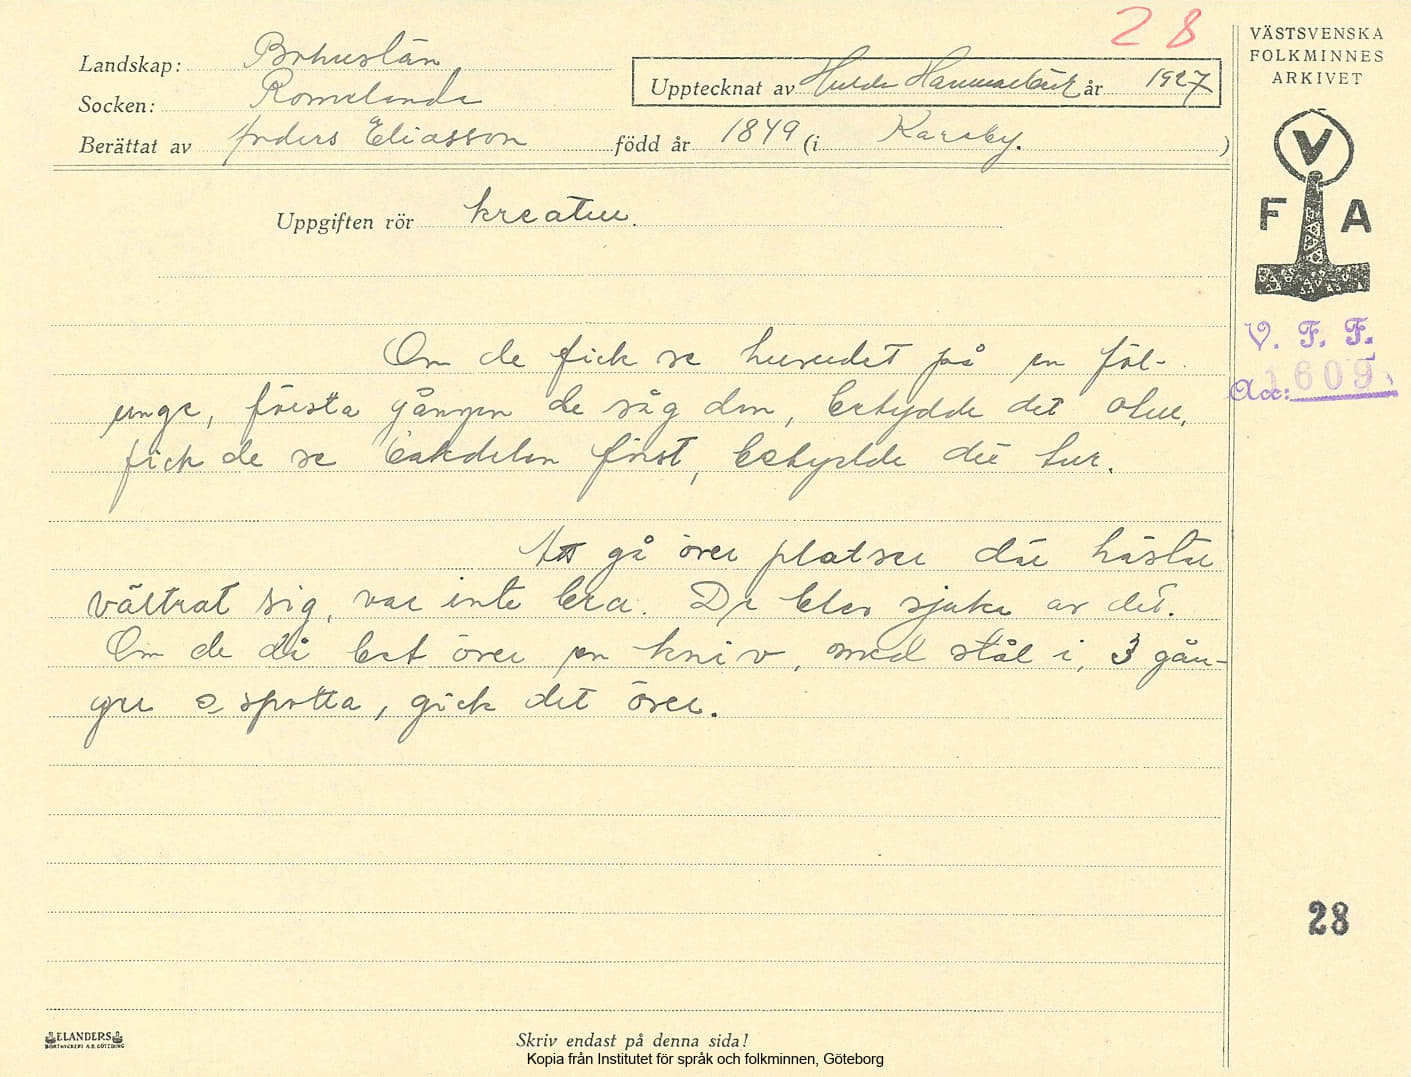 28
Landskap: Bohuslän
Socken: Romelanda
Upptecknat av Hulda Hammarbäck år 1927
Berättat av Anders Eliasson född år 1849 (i Kareby. )
VÄSTSVENSKA
FOLKMINNES
ARKIVET
V
F A
Uppgiften rör kreatur.
V. F. F.
Acc: 1609
Om de fick se huvudet på en föl-
unge, första gången de såg den, betydde det otur,
fick de se bakdelen först, betydde det tur.
Att gå över platser där hästar
vältrat sig, var inte bra. De blev sjuka av det.
Om de då bet över en kniv, med stål i, 3 gån-
ger o spotta, gick det över.
28
ELANDERS
BOKTRYCKERI A.B. GÖTEBORG
Skriv endast på denna sida!
Kopia från Institutet för språk och folkminnen, Göteborg